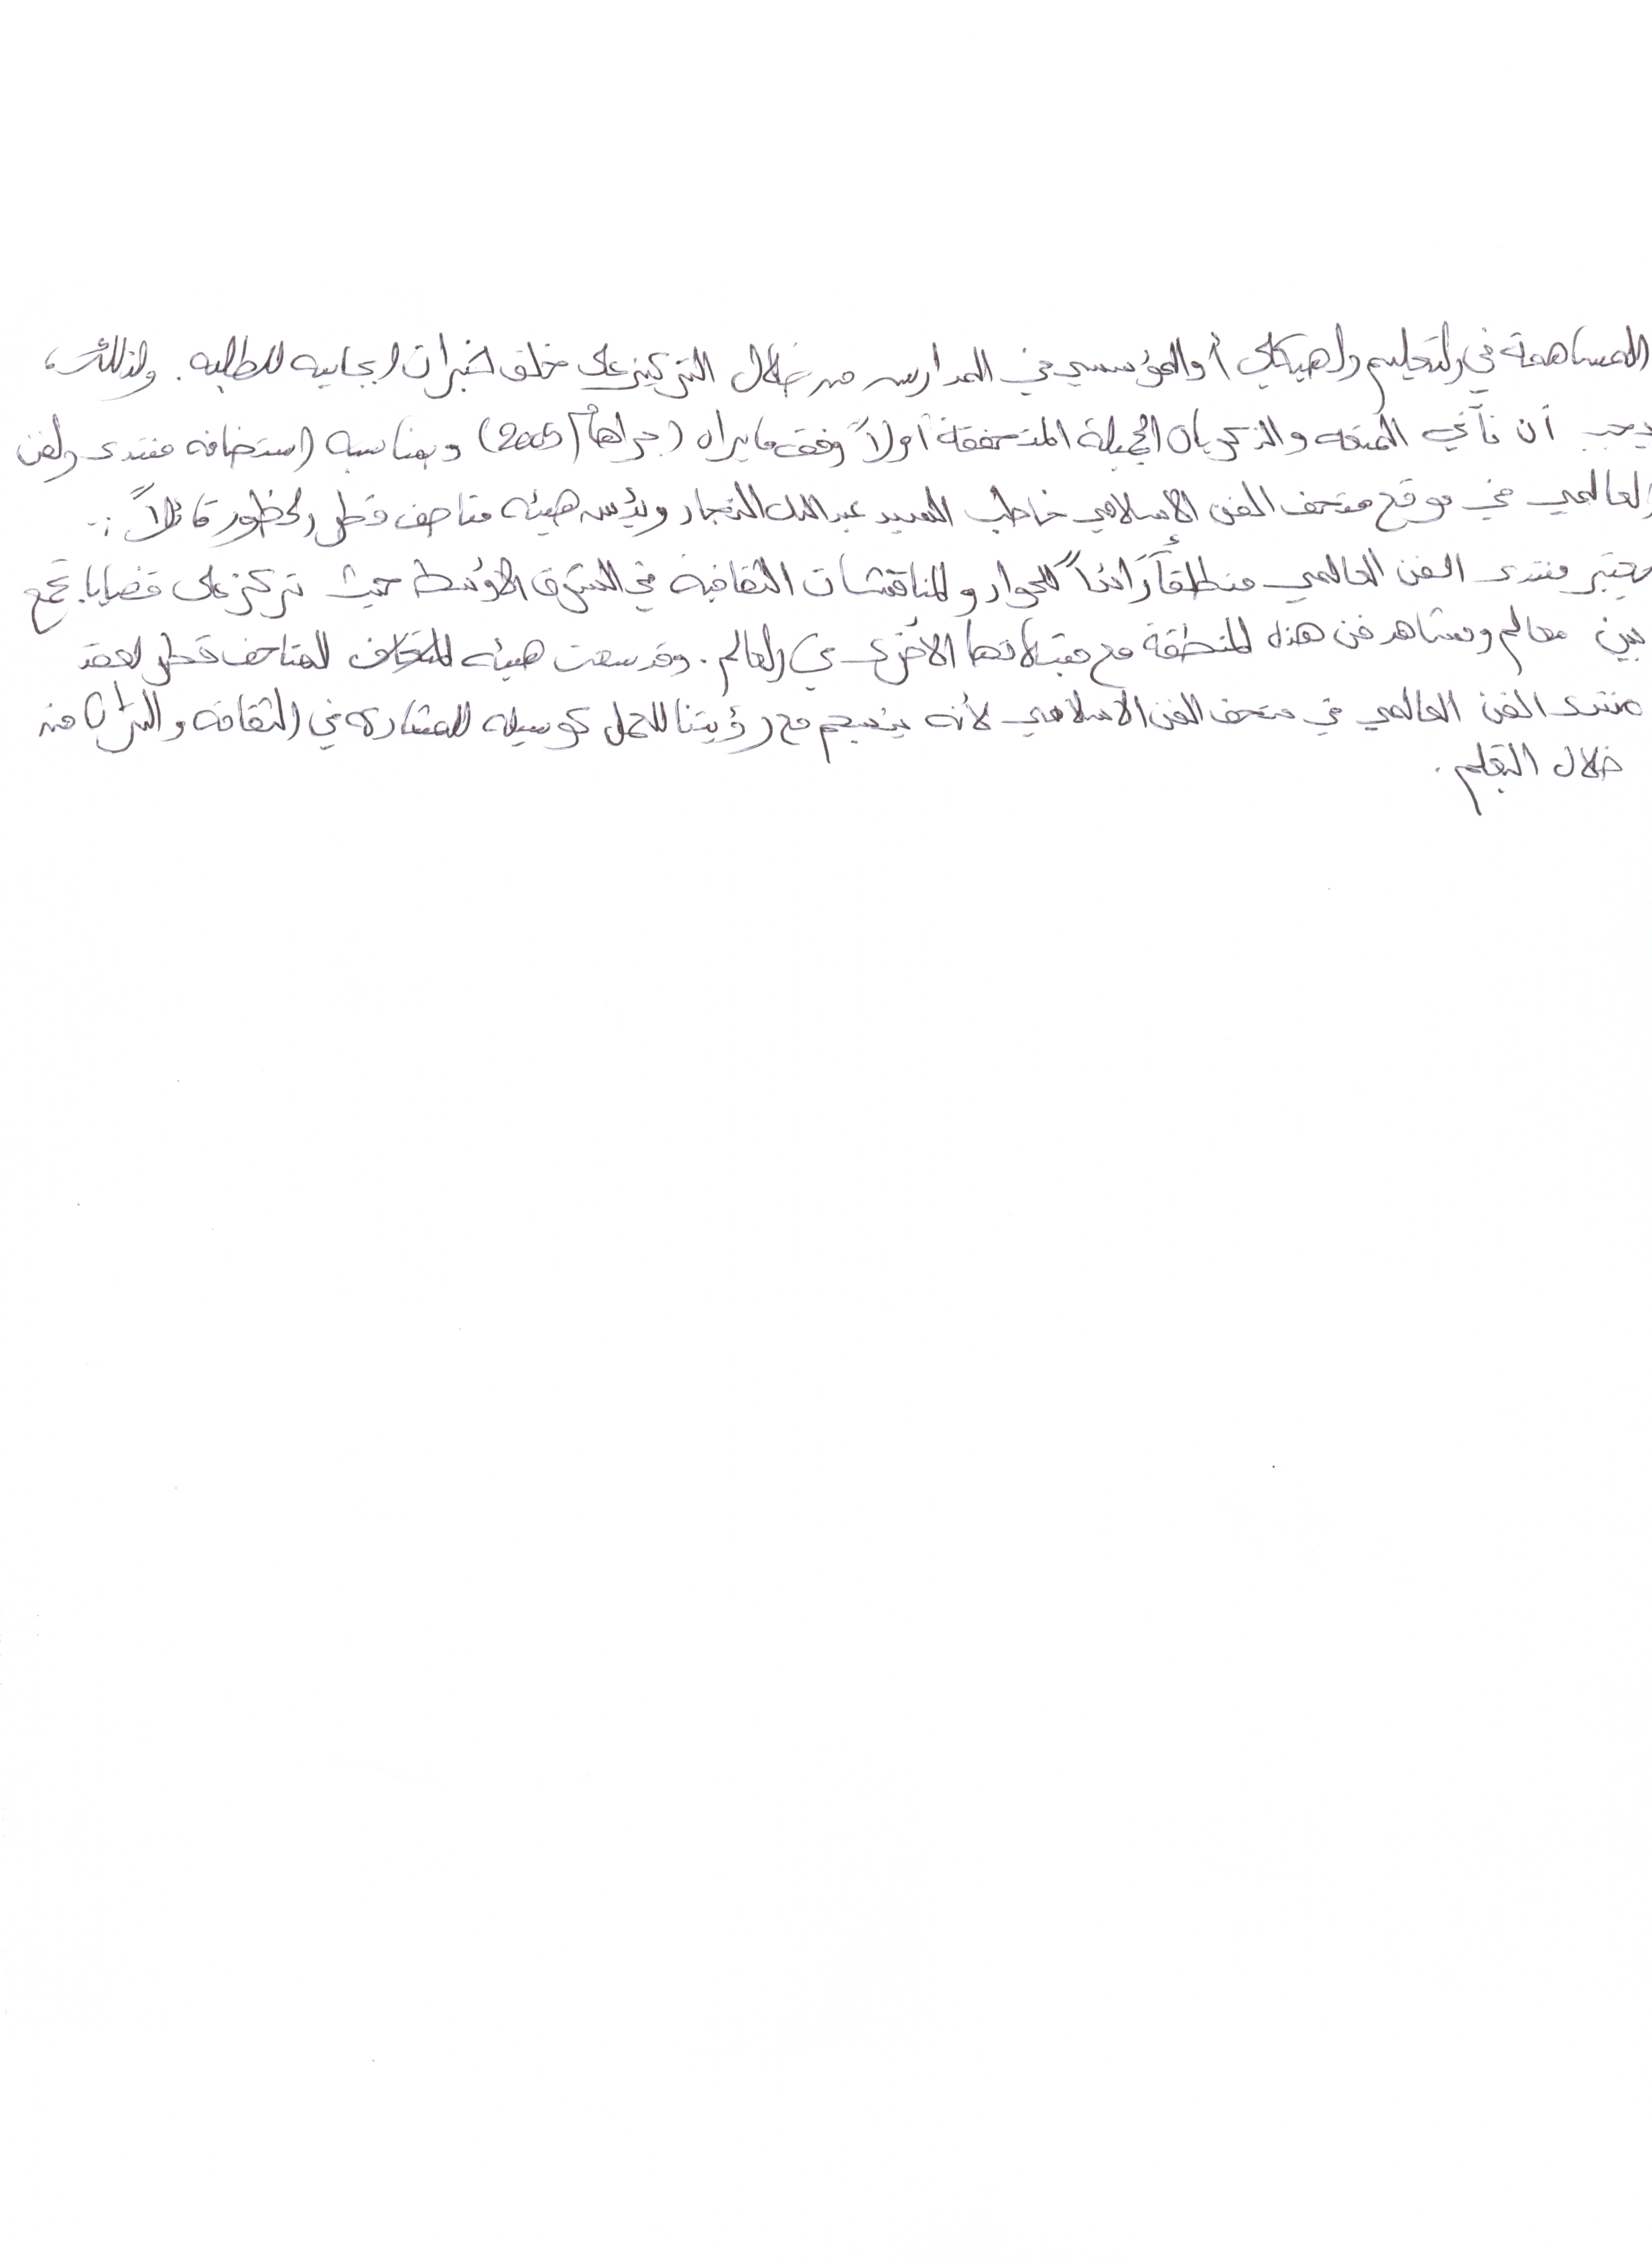 المساهمة في التعليم الهيكلي أو المؤسسي في المدارس من خلال التركيز على خلق خبرات ايجابيه للطلبه. ولذلك،
يجب أن تأتي المتعه والذكريات الجميلة المتحققة أولاً وفق ما يراه (جراهام 2005) وبمناسبه استضافه منتدى الفن
العالمي في موقع متحف الفن الاسلامي خاطب السيد عبدالله النجار رئيس هيئه متاحف قطر الحظور قائلاً :
يعتبر منتدى الفن العالمي منطلقاً رائداً للحوار والمناقشات الثقافية في الشرق الأوسط حيث تركز على قضايا تجمع
بين معالم ومشاهد من هذه المنطقة مع مثيلاتها الأخرى في العالم. وقد سعت هيئه المتاحف قطر لعقد
منتدى الفن العالمي في متحف الفن الاسلامي لأنه ينسجم مع رؤيتنا للعمل كوسيله للمشاركه في الثقافه والتراث من
خلال التعلم.